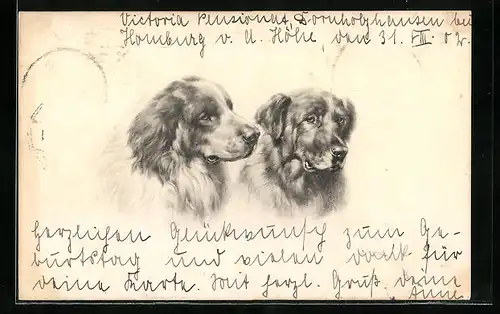 Victoria Pensionat, Dornholzhausen bei
Homburg v. d. Höhe, den 31. VIII. 02.
Herzlichen Glückwunsch zum Ge-
burtstag und vielen Dank für
deine Karte. Mit herzl. Gruß, deine
Anne